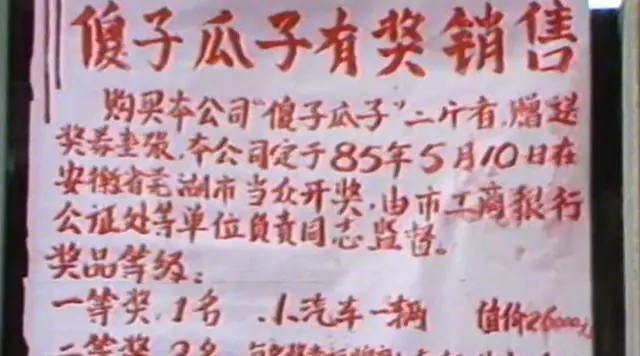 傻子瓜子有奖销售
购买本公司“傻子瓜子”二斤者，赠送
奖券壹張，本公司定于85年5月10日在
安徽省芜湖市当众开奖，由市工商银行
公证处等单位負責同志监督。
奖品等级：
一等奖，1名 小汽车一辆 值价26000元
二等奖 2名